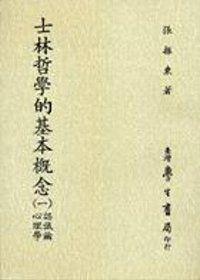 張振東著
士林哲學的基本概念(一)
認識論
心理學
臺灣學生書局印行